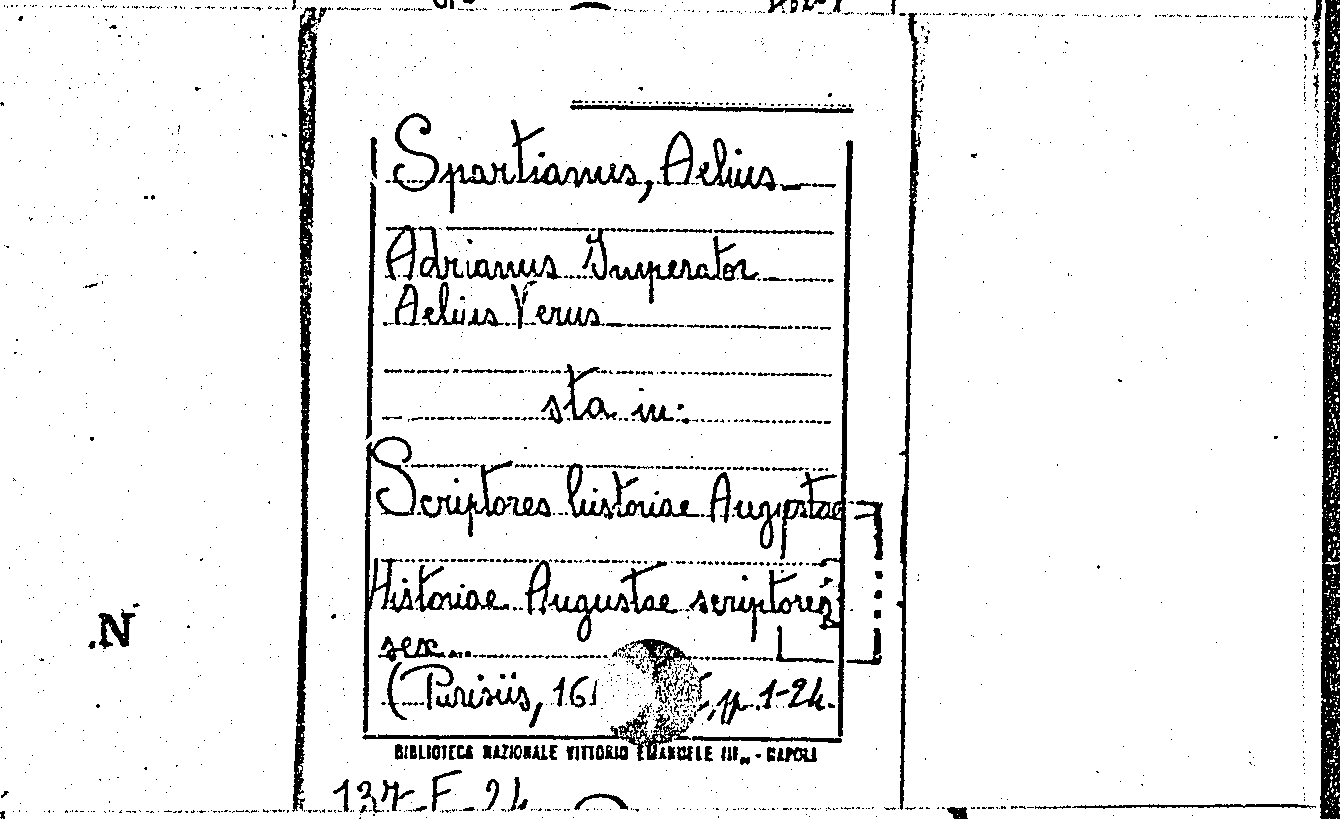 Spartianus, Aelius
Adrianus Imperator
Aelius Verus
sta in:
Scriptores historiae Augustae
Historiae Augustae scriptores
sex...
(Parisiis, 16 , pp. 1-24.
BIBLIOTECA NAZIONALE VITTORIO EMANUELE III - NAPOLI
137 F 24
.N